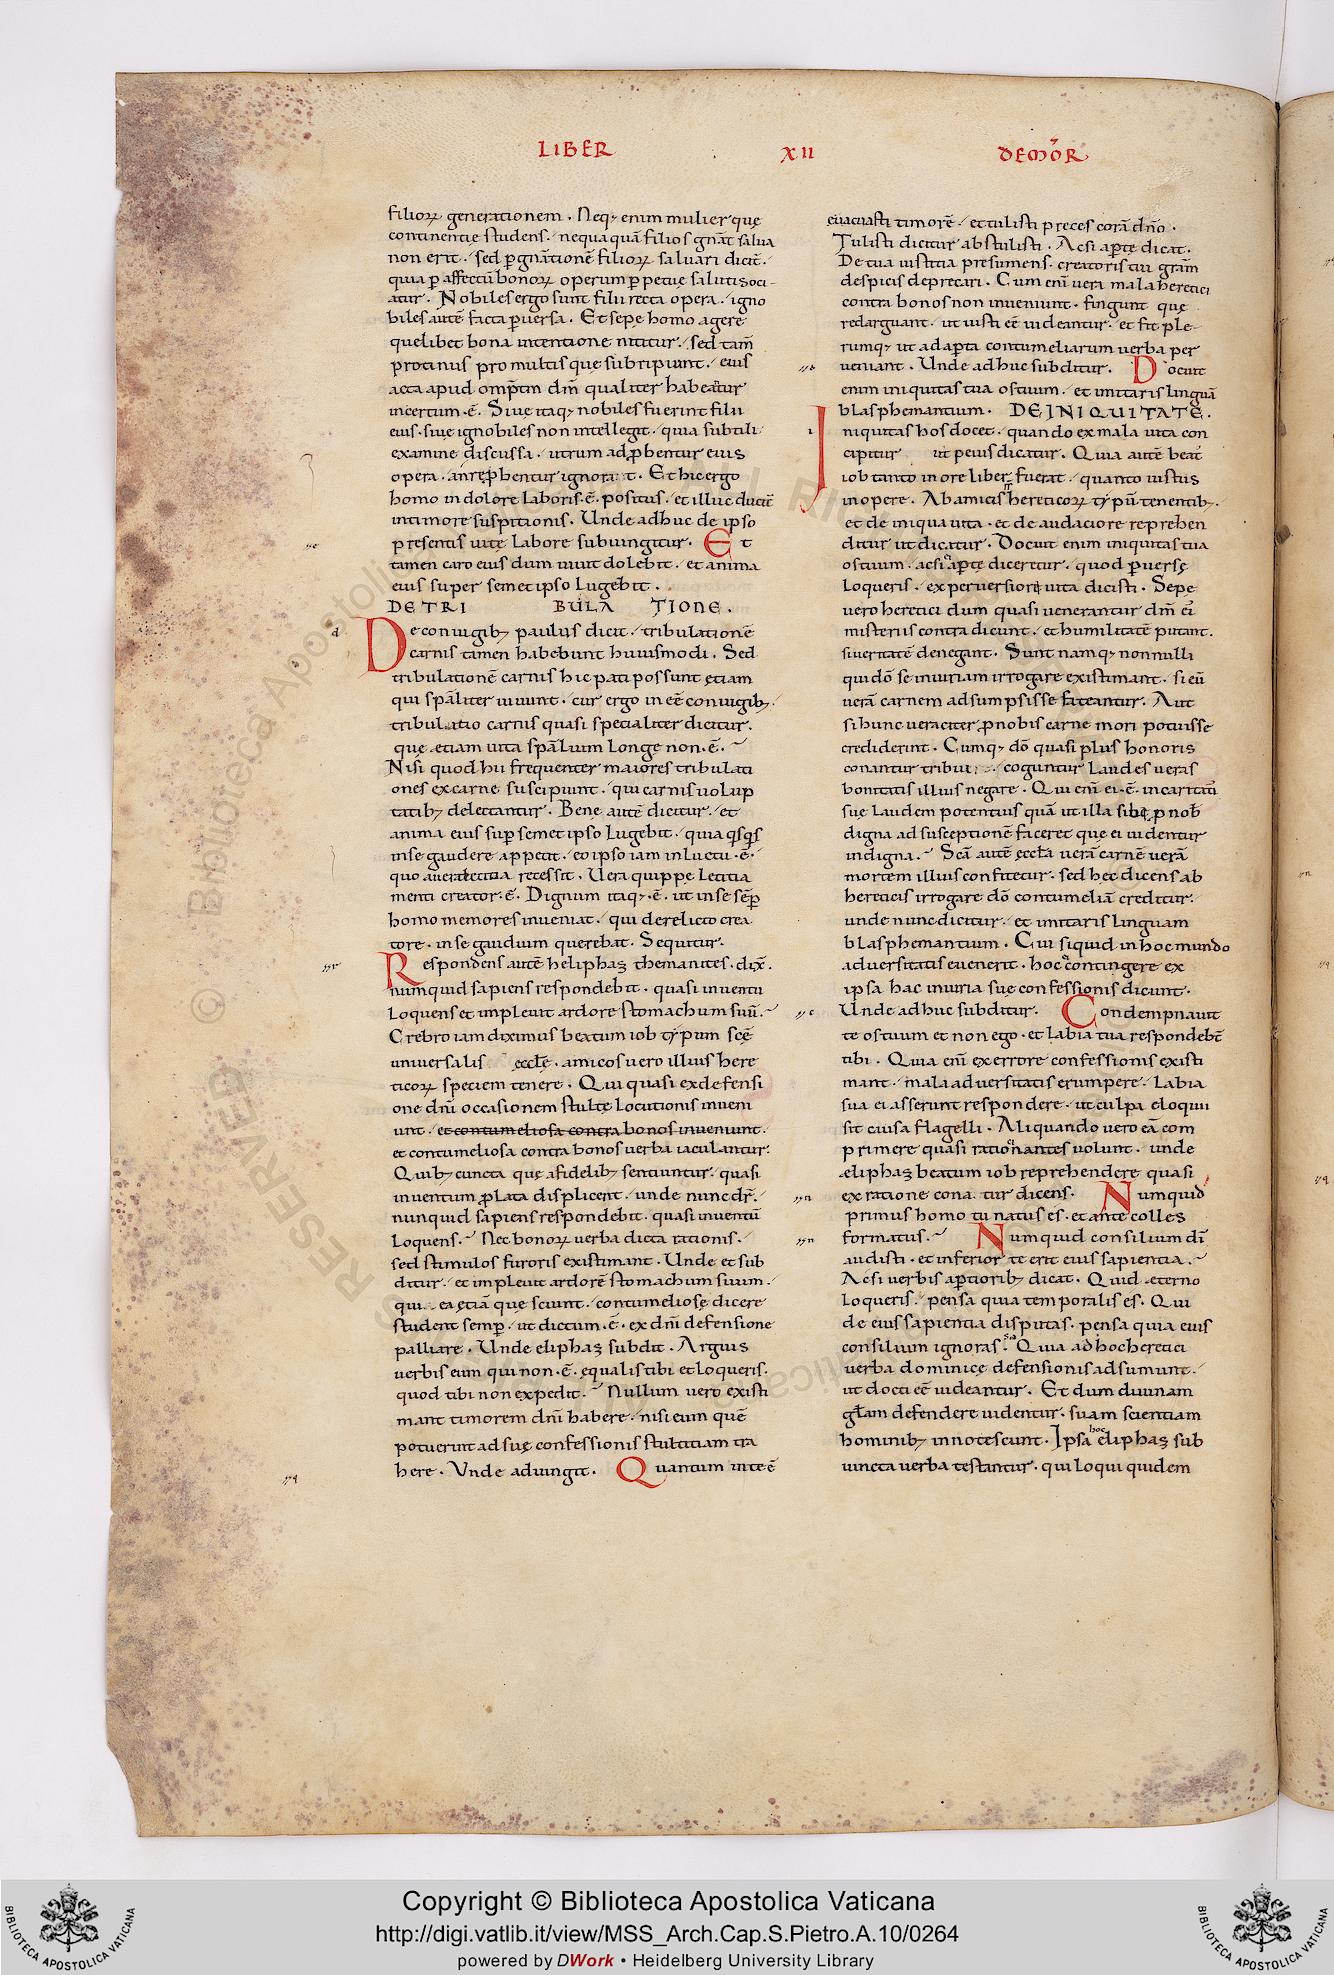 LIBER XII DEMOR̄
filioꝝ generationem . Neq; enim mulier quę
continentię studens .' nequaquā filios gnāt salua
non erit .' sed ꝑ gnātionē filioꝝ saluari dicit̄ .'
quia ꝑ affectū bonoꝝ operum ꝑpetuę saluti soci-
atur . Nobiles ergo sunt filii recta opera .' igno
biles autē facta ꝑuersa . Et sepe homo agere
quelibet bona intentione nititur .' sed tam̄
protinus pro multis que subripiunt .' eius
acta apud omp̄tm dm̄ qualiter habeatur
incertum .ē. Siue itaq; nobiles fuerint filii
eius . siue ignobiles non intellegit .' quia subtili
examine discussa .' utrum adꝓbentur eius
opera . an reꝓbentur ignorat . Et hic ergo
homo in dolore laboris .ē. positus .' et illuc ducit̄
in timore suspitionis . Unde adhuc de ipso
presentis uitę labore subiungitur . Et
tamen caro eius dum uiuit dolebit .' et anima
eius super semet ipso lugebit .
DE TRI BULA TIONE .
De coniugib; paulus dicit .' tribulationē
carnis tamen habebunt huiusmodi . Sed
tribulationē carnis hic pati possunt ętiam
qui spāliter uiuunt . cur ergo in eē coniugib; .
tribulatio carnis quasi specialiter dicitur .
que ętiam uita spālium longe non .ē.
Nisi quod hii frequenter maiores tribulati
ones ex carne suscipiunt .' qui carnis uolup
tatib; delectantur . Bene autē dicitur .' et
anima eius suꝑ semet ipso lugebit .' quia qͥsqͥs
in se gaudere appetit .' eo ipso iam in luctu .ē.
quo a uera letitia recessit . Uera quippe letitia
menti creator .ē. Dignum itaq; .ē. ut in se sēꝑ
homo memores inueniat .' qui derelicto crea
tore . in se gaudium querebat . Sequitur .
Respondens autē heliphaz themanites . dix̄ .
numquid sapiens respondebit . quasi in uentū
loquens et impleuit ardore stomachum suū .
Crebro iam diximus beatum iob tẏpum scę̄
uniuersalis ęcclę̄ . amicos uero illius here
ticoꝝ speciem tenere . Qui quasi ex defensi
one dn̄i occasionem stultę locutionis inueni
unt .' et contumeliosa contra bonos inueniunt .
et contumeliosa contra bonos uerba iaculantur .
Quib; cuncta que a fidelib; sentiuntur .' quasi
in uentum ꝓlata displicent .' unde nunc dr̄ .'
nunquid sapiens respondebit . quasi in uentū
loquens . Nec bonoꝝ uerba dicta rationis .'
sed stimulos furoris existimant . Unde et sub
ditur .' et impleuit ardorē stomachum suum .
qui ea ętiā quę sciunt .' contumeliosę dicere
student semꝑ .' ut dictum .ē. ex dn̄i defensione
palliare . Unde eliphaz subdit . Arguis
uerbis eum qui non .ē. ęqualis tibi et loqueris .
quod tibi non expedit . Nullum uero existi
mant timorem dn̄i habere .' nisi eum quē
potuerint ad suę confessionis stultitiam tra
here . Unde adiungit . Quantum in te ē
euacuasti timorē .' et tulisti preces corā dn̄o .
Tulisti dicitur abstulisti . Ac si aꝑte dicat .
De tua iustitia presumens . creatoris tui grām
despicis deprecari . Cum eni uera mala heretici
contra bonos non inueniunt .' fingunt quę
redarguant .' ut iusti eē uideantur .' et fit ple-
rumq; ut ad aꝑta contumeliarum uerba per
ueniant . Unde adhuc subditur . Docuit
enim iniquitas tua os tuum .' et imitaris linguā
blasphemantium . DE INIQUITATE .
Iniquitas hos docet .' quando ex mala uita con
cipitur ut peius dicatur . Quia autē beat̄
iob tanto in ore liber fuerat .' quanto iustus
in opere . Ab amicis hereticoꝝ tẏpū tenentib; .
et de iniqua uita . et de audaciore reprehen
ditur ut dicatur . Docuit enim iniquitas tua
os tuum .' ac si aꝑtę diceretur .' quod ꝑuersę
loqueris .' ex peruersiore uita dicisti . Sepe
uero heretici dum quasi uenerantur dm̄ ei
misteriis contradicunt .' et humilitatē putant .
si ueritatē denegant . Sunt namq; nonnulli
qui dō se iniuriam irrogare existimant .' si eū
uerā carnem adsumpsisse fateantur . Aut
si hunc ueraciter ꝓ nobis carne mori potuisse
crediderint . Cumq; dō quasi plus honoris
conantur tribui .' coguntur laudes ueras
bonitatis illius negare . Qui eni ei .ē. in caritati
suę laudem potentius quā ut illa sibi ꝓ nob̄
digna ad susceptionē faceret que ei uidentur
indigna . Scā autē ęccla uerā carnē uerā
mortem illius confitetur .' sed hęc dicens ab
hereticis irrogare dō contumeliā creditur .
unde nunc dicitur .' et imitaris linguam
blasphemantium . Cui siquid in hoc mundo
aduersitatis euenerit .' hoc contingere ex
ipsa hac iniuria suę confessionis dicunt .
Unde adhuc subditur . Condempnauit
te os tuum et non ego . et labia tua respondebt̄
tibi . Quia eni ex errore confessionis existi
mant .' mala aduersitatis erumpere .' labia
sua ei asserunt respondere .' ut culpa eloquii
sit causa flagelli . Aliquando uero eā com
primere quasi rationantes uolunt .' unde
ęliphaz beatum iob reprehendere quasi
ex ratione conatur dicens . Numquid
primus homo tu natus es . et ante colles
formatus . Numquid consilium di
audisti . et inferior te erit eius sapientia .
Ac si uerbis aꝑtiorib; dicat . Quid ęterno
loqueris .' pensa quia temporalis es . Qui
de eius sapientia disputas . pensa quia eius
consilium ignoras . Quia ad hoc heretici
uerba dominicę defensionis adsumunt .'
ut docti eē uideantur . Et dum diuinam
glām defendere uidentur .' suam scientiam
hominib; innotescunt . Ipsa hoc eliphaz sub
iuncta uerba testantur . qui loqui quidem
Copyright © Biblioteca Apostolica Vaticana
http://digi.vatlib.it/view/MSS_Arch.Cap.S.Pietro.A.10/0264
powered by DWork • Heidelberg University Library